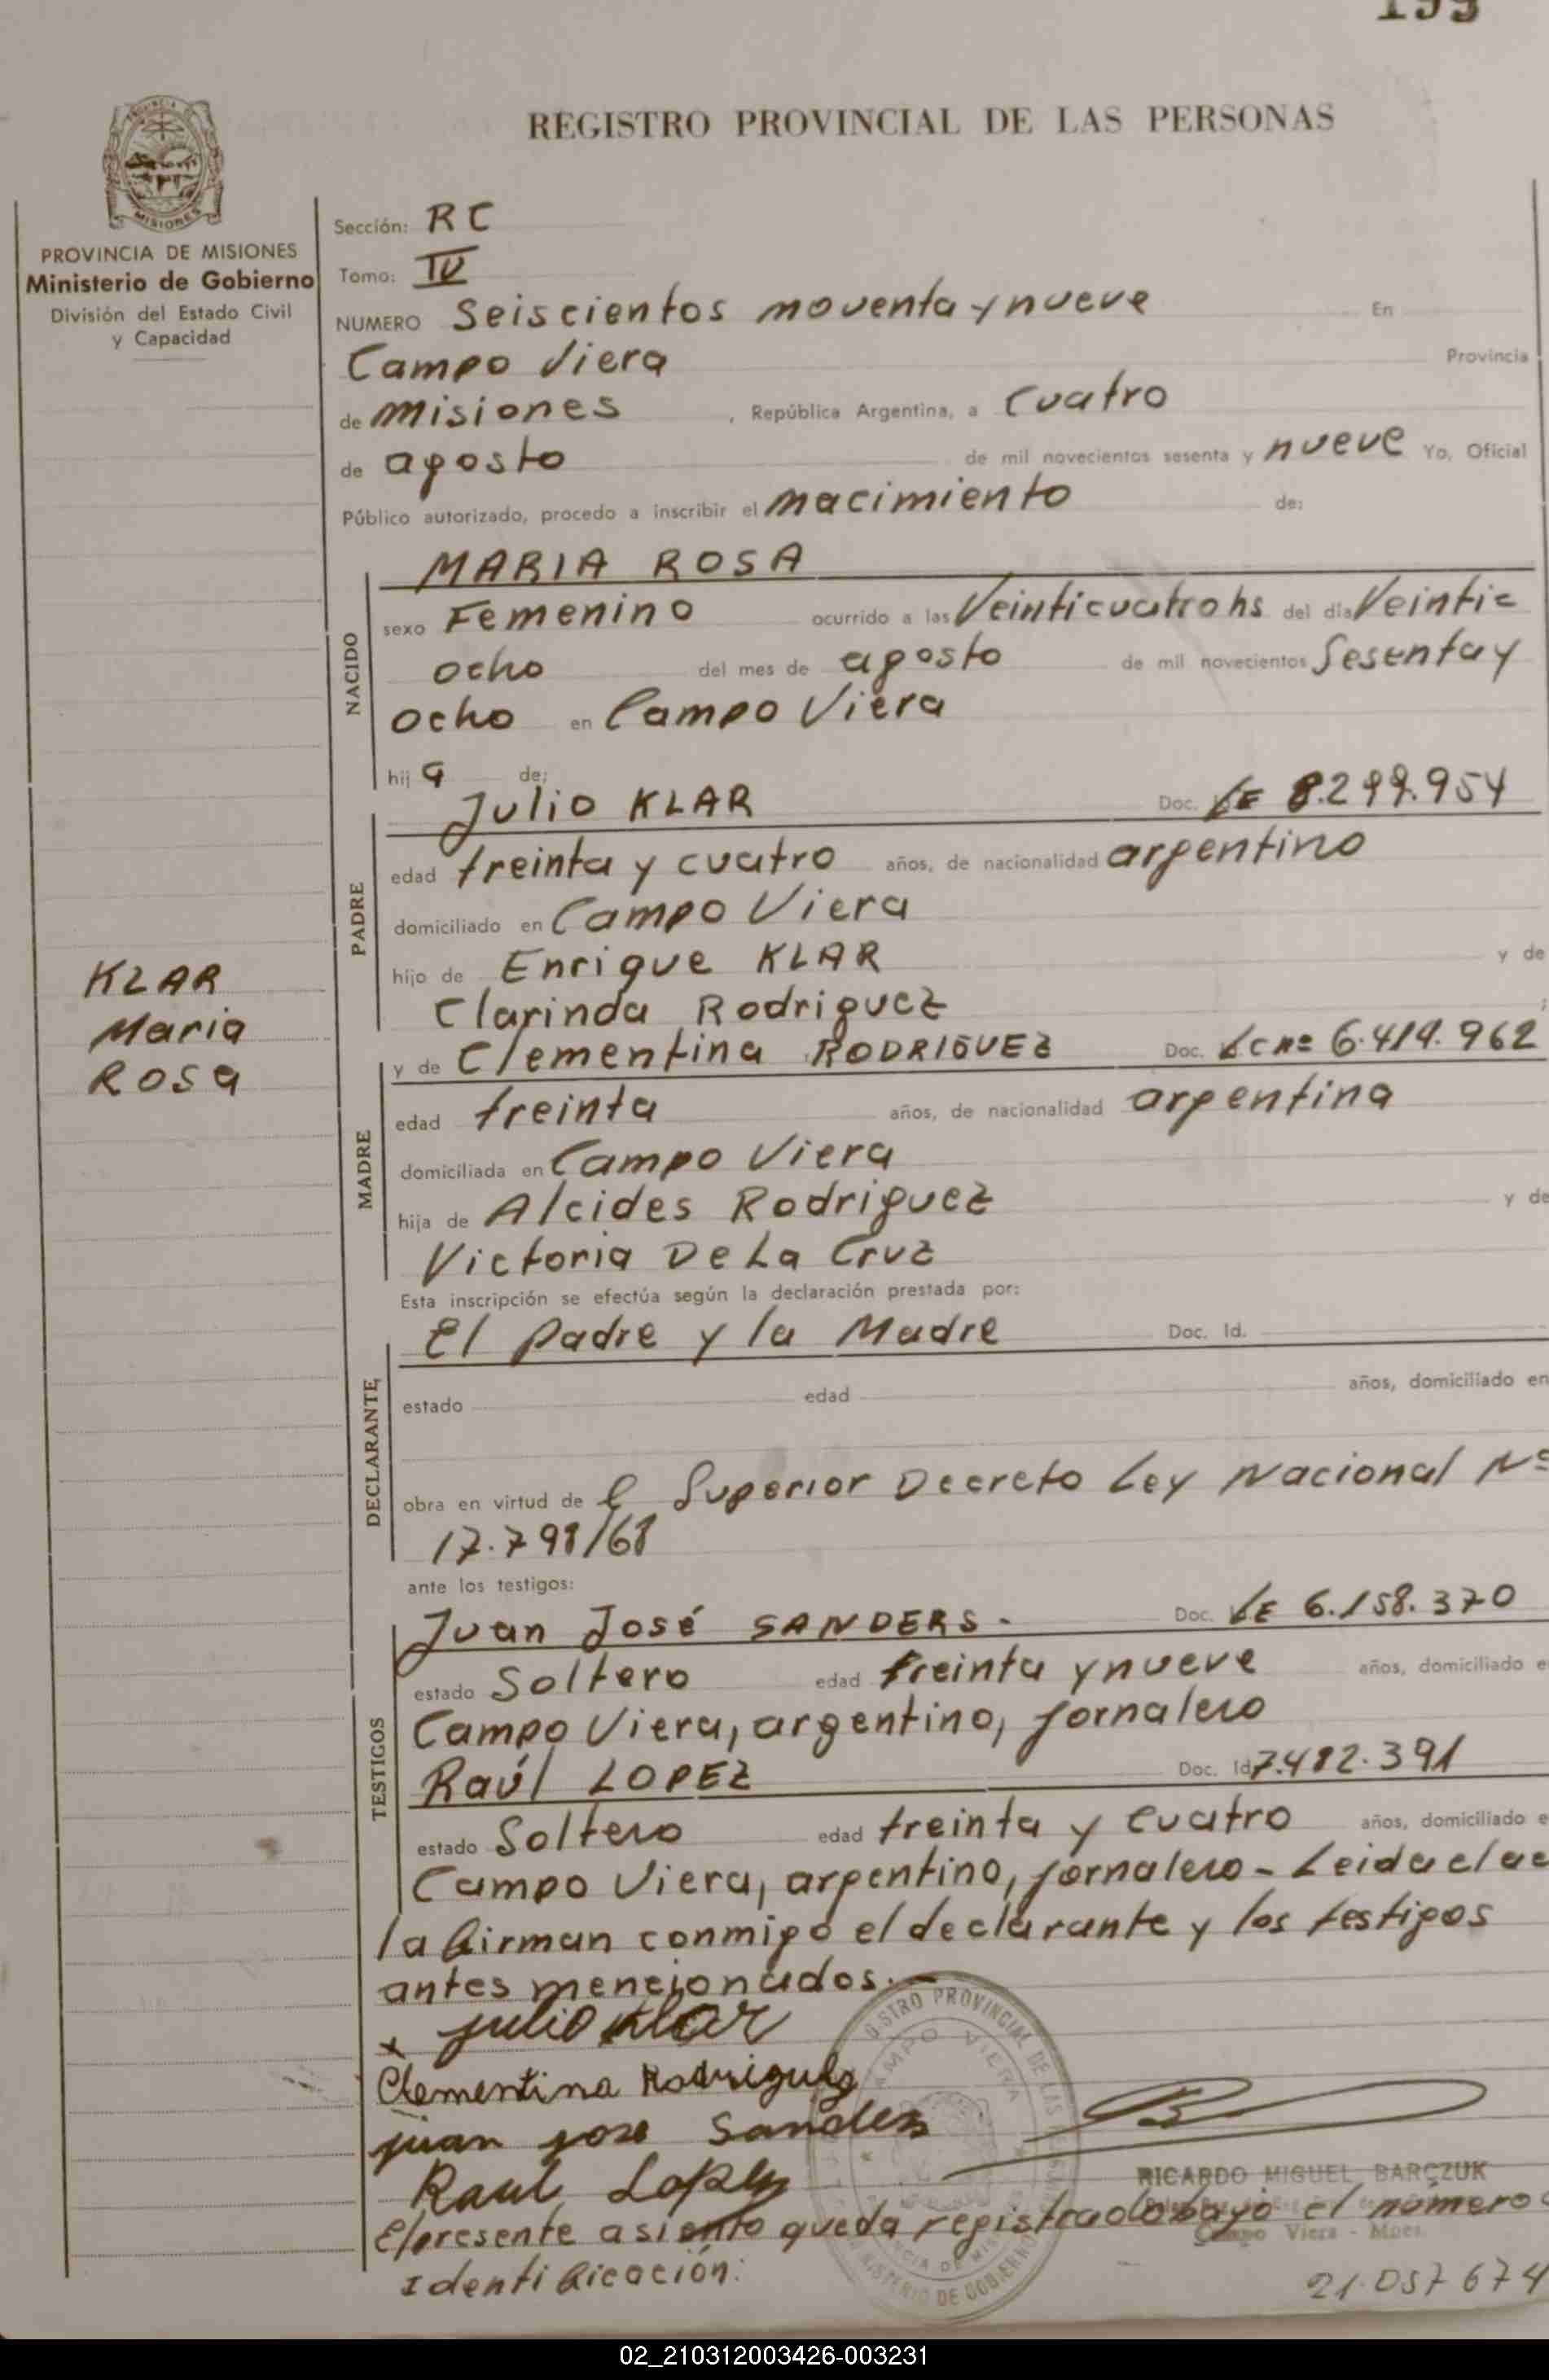 199
REGISTRO PROVINCIAL DE LAS PERSONAS
PROVINCIA DE MISIONES
Ministerio de Gobierno
División del Estado Civil
y Capacidad
Sección: RC
Tomo: IV
NUMERO Seiscientos noventa y nueve En
Campo Viera Provincia
de Misiones , República Argentina, a Cuatro
de agosto de mil novecientos sesenta y nueve Yo, Oficial
Público autorizado, procedo a inscribir el nacimiento de:
NACIDO
MARIA ROSA
sexo Femenino ocurrido a las Veinticuatro hs del día Veintic
ocho del mes de agosto de mil novecientos Sesenta y
ocho en Campo Viera
hij a de:
PADRE
Julio KLAR Doc. LE 8.299.954
edad treinta y cuatro años, de nacionalidad argentino
domiciliado en Campo Viera
hijo de Enrique KLAR y de
Clarinda Rodriguez
KLAR
Maria
Rosa
MADRE
y de Clementina RODRIGUEZ Doc. LC Nº 6.414.962
edad treinta años, de nacionalidad argentina
domiciliada en Campo Viera
hija de Alcides Rodriguez y de
Victoria De La Cruz
Esta inscripción se efectúa según la declaración prestada por:
DECLARANTE
El padre y la Madre Doc. Id.
estado edad años, domiciliado en
obra en virtud de l Superior Decreto Ley Nacional Nº
17.798/68
ante los testigos:
TESTIGOS
Juan José SANDERS.- Doc. LE 6.158.370
estado Soltero edad treinta y nueve años, domiciliado e
Campo Viera, argentino, jornalero
Raúl LOPEZ Doc. Id 7.482.391
estado Soltero edad treinta y cuatro años, domiciliado e
Campo Viera, argentino, jornalero - Leida el ac
ta firman conmigo el declarante y los testigos
antes mencionados.-
x julio Klar
Clementina Rodriguez
juan jose Sanders
Raul Lopez
RICARDO MIGUEL BARCZUK
Campo Viera - Mnes.
El presente asiento queda registrado bajo el número
Identificación:
21.057674
02_210312003426-003231